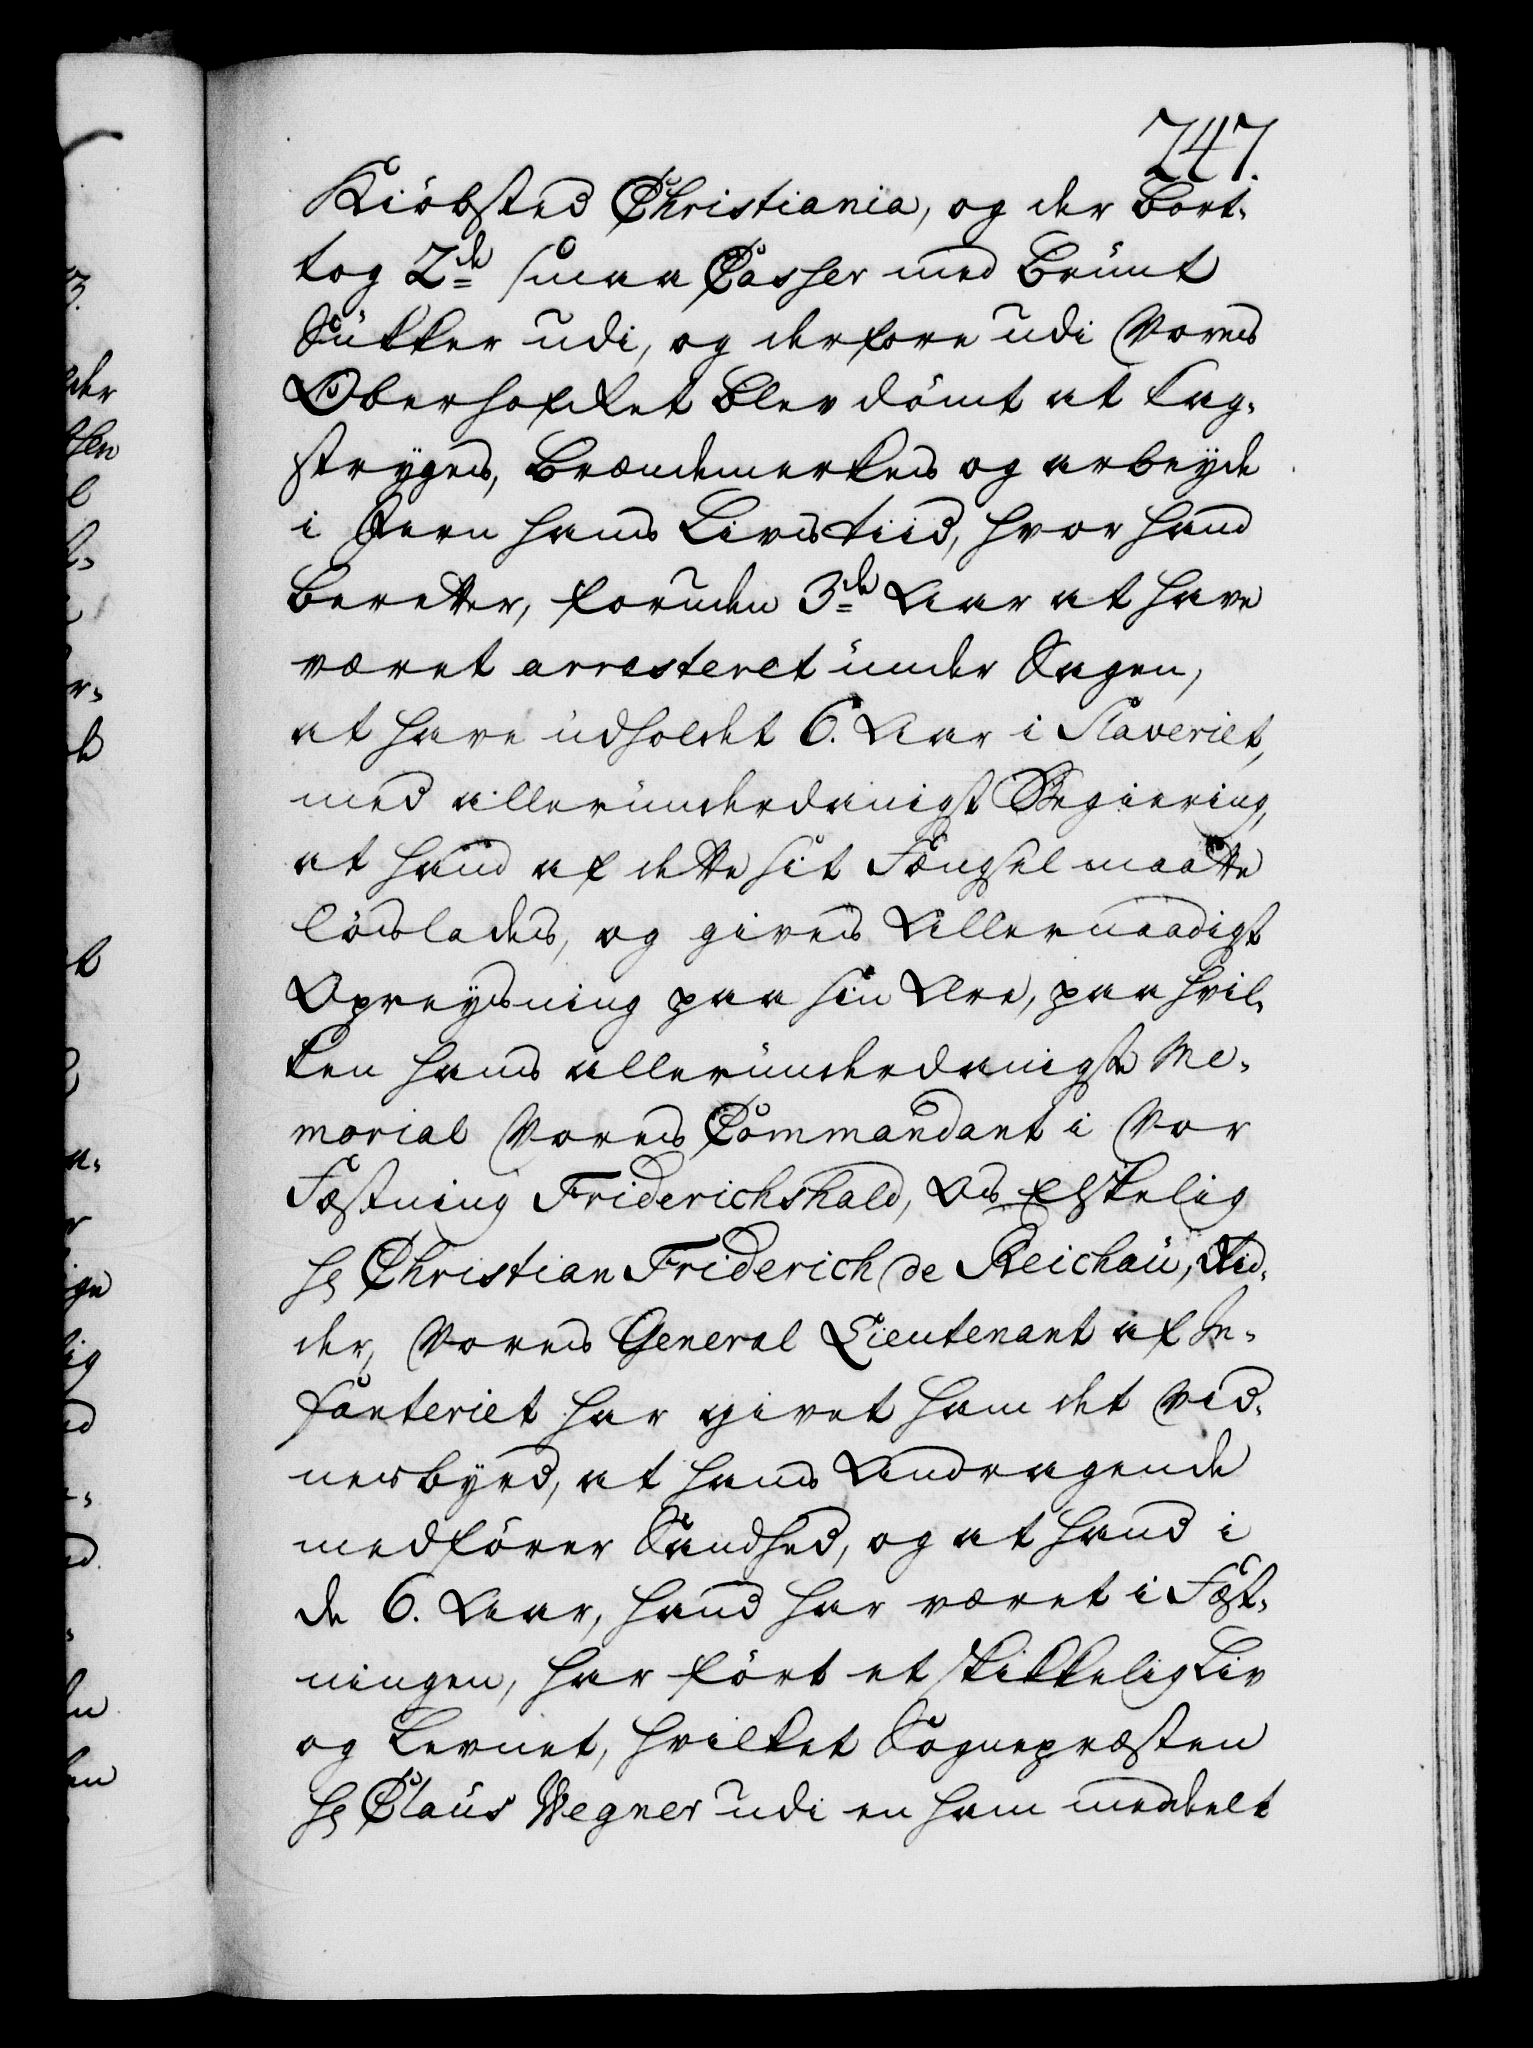 747.
Kiöbsted Christiania, og der bort-
tog 2de smaa Casser med bruut
Sukker udi, og derfore udi Vores
Oberhofret blev dömt at Kag-
stryges, brændemerkes og arbeyde
i Jern hans Livs tiid, hvor hand
beretter, foruden 3de Aar at have
været arresteret under Sagen,
at have udholdet 6. Aar i Slaveriet,
med allerunderdanigst Begiering,
at hand af dette sit Fængsel maatte
löslades, og gives Allernaadigst
Opreysning paa sin Ære, paa hvil-
ken hans allerunderdanigste Me-
morial Vores Commandant i Vor
Fæstning Friderichshald, Os Elskelig
Hr Christian Friderich de Reichau, Rid-
der, Vores General Lieutenant af In-
fanteriet har givet ham det Vid-
nesbyrd, at hans Andragende
medförer Sandhed, og at hand i
de 6. Aar, hand har været i Fæst-
ningen, har fört et skikkelig Liv
og Levnet, hvilket Sognepræsten
Hr Claus Wegner udi en ham meddelt
der
sen
l
t
ige
lig
en